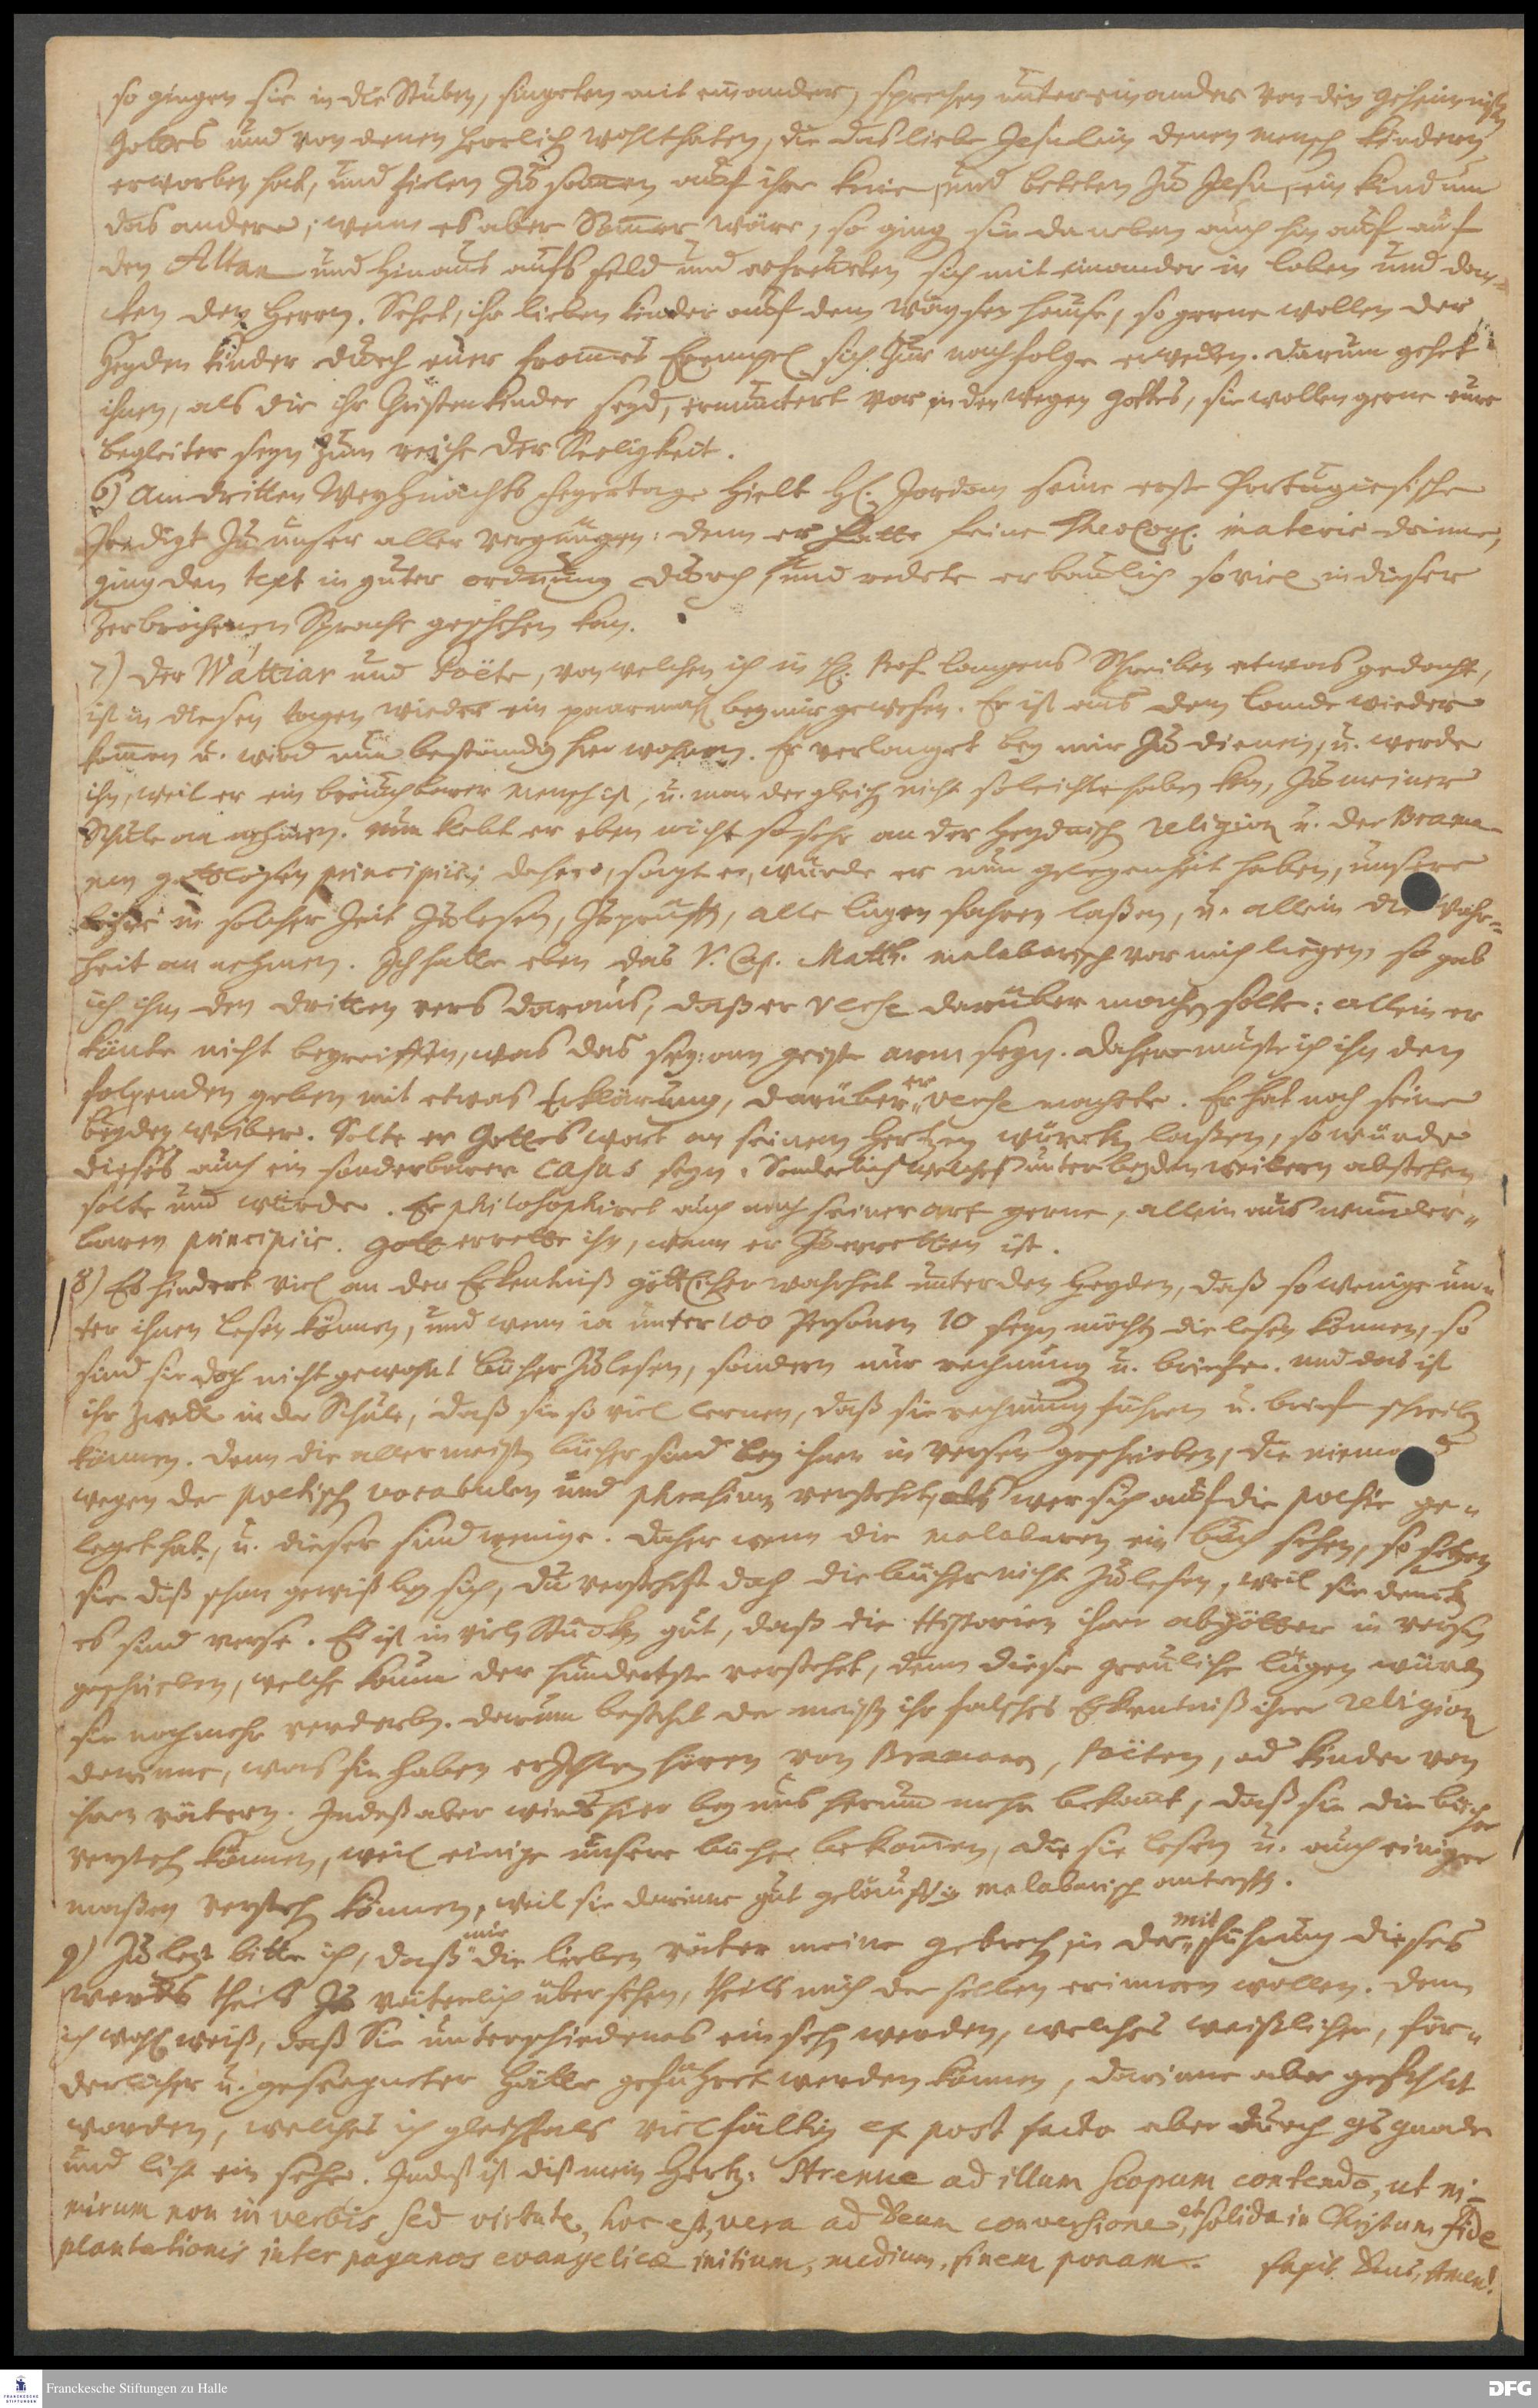 so gingen sie in die Stuben, singeten mit einander, sprachen untereinander von den geheimnißen
Gottes und von denen herrlich wohlthaten, die das liebe Jesulein denen mensch kindern
erworben hat, und fielen zusamen auf ihre knie, und beteten zu Jesu, ein kind um
das andere; wenn es aber Somer wäre, so ging sie daneben auch hinauf auf
den Altan und hinaus aufs feld und erfreueten sich mit einander in loben und dan-
cken den Herrn. Sehet, ihr lieben kinder auf dem waysen hause, so gerne wollen der
Heyden kinder durch euer fromes Exempel sich zur nachfolge erwecken. darum gehet
ihnen, als die ihr Christen kinder seyd, ermuntert vor in den wegen Gottes, sie wollen gerne eure
begleiter seyn zum reiche der Seeligkeit.
6) am dritten Weyhnachts feyertage hielt H. Jordan seine erste Portugiesische
Predigt zu unser aller vergnügen: denn er hatte feine Theolog. materie drinne,
ging den text in guter ordnung durch, und redete erbaulich so viel in dieser
zerbrochenen Sprache geschehen kan.
7) Der Wáttiar und Poëte, von welchen ich in H. Prof. Langens Schreiben etwas gedacht,
ist in diesen tagen wieder ein paarmahl bey mir gewesen. Er ist aus dem lande wieder
komen u. wird nun beständig hier wohnen. Er verlanget bey mir zu dienen, u. werde
ihn, weil er ein brauchbarer mensch ist, u. man dergleich nicht so leichte haben kan, zu meiner
Schule an nehmen. nun klebt er eben nicht so sehr an der Heydnisch religion u. der Brama-
nen gottlosen principiis; dahero, sagt er, würde er nun gelegenheit haben, unsere
lehre in solcher Zeit zu lesen, zu prüffen, alle lügen fahren laßen, u. allein die Wahr-
heit an nehmen. Ich hatte eben das V. Cap. Matth. malabarisch vor mich liegen, so gab
ich ihm den dritten vers daraus, daß er verse darüber machen solte: allein er
könte nicht begreiffen, was das sey: am geiste arm seyn. dahero muste ich ihm den
folgenden geben mit etwas Erklärung, darüber er verse machete. Er hat noch seine
beyden weiber. Solte er Gottes wort an seinem Hertzen würcken laßen, so würde
dieses auch ein sonderbarer casus seyn. Sonderlich welches unter beyden weibern abstehen
solte und würde. Er philosophiret auch nach seiner art gerne, allein aus wunder-
baren principiis. Gott errette ihn, wenn er zu erretten ist.
8) Es hindert viel an der Erkentniß göttlicher wahrheit unter den Heyden, daß so wenige un-
ter ihnen lesen können, und wenn ia unter 100 Personen 10 seyn möchten die lesen können, so
sind sie doch nicht gewohnt bücher zu lesen, sondern nur rechnung u. briefe. und das ist
ihr zweck in der Schule, daß sie so viel lernen, daß sie rechnung führen u. briefe schreiben
können. denn die allermeisten bücher sind bey ihnen in versen geschrieben, die niemand
wegen der poetisch vocabulen und phrasium verstehet, als wer sich auf die poesie ge-
leget hat, u. dieser sind wenige. daher wenn die malabaren ein buch sehen, so setzen
sie diß schon gewiß bey sich, du verstehest doch die bücher nicht zu lesen, weil sie dencken
es sind verse. Es ist in vielen Stücken gut, daß die Historien ihrer abgötter in versen
geschrieben, welche kaum der hunderteste verstehet, denn diese greuliche lügen würden
sie noch mehr verderben. darum bestehet der meisten ihr falsches Erkentniß ihrer religion
darinne, was sie haben erzehlen hören von Bramanen, Poëten, od kinder von
ihren vätern. Indeß aber wirds hier bey uns herum mehr bekant, daß sie die bücher
versteh können, weil einige unsere bücher bekomen, die sie lesen u. auch einiger
maßen versteh können, weil sie darinne gut geläuffig malabarisch antreffen.
9) Zu letzt bitte ich, daß mir die lieben väter meine gebrechen in der mit führung dieses
wercks theils zu väterlich übersehen, theils mich derselben erinnern wollen. denn
ich wohl weiß, daß Sie unterschiedenes einsehen werden, welches weißlicher, för-
derlicher u. geseegneter hätte geführet werden können, darinne aber gefehlet
worden, welches ich gleichfals vielfältig ex post facto aber durch Gs gnade
und licht ein sehe. Indeß ist diß mein Hertz: Strenue ad illum scopum contendo, ut ni-
mirum non in verbis sed virtute, hoc est, vera ad Deum conversione, et solida in Christum fide
plantationis inter paganos evangelicæ initium, medium, finem ponam. faxit Deus, Amen!
Franckesche Stiftungen zu Halle
FRANCKESCHE STIFTUNGEN
DFG